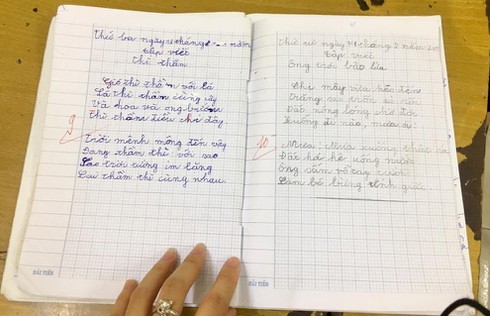 Thứ ba ngày tháng năm
Tập viết
Thì thầm
Gió thì thầm với lá
Lá thì thầm cùng cây
Và hoa và ong bướm
Thì thầm điều chi đây.
9
Trời mênh mông đến vậy
Đang thầm thì với sao
Sao trời tưởng im lặng
Lại thầm thì cùng nhau.
HẢI TIẾN
Thứ tư ngày tháng 2 năm
Tập viết
Ông trời bật lửa
Chị mây vừa kéo đến
Trăng sao trốn cả rồi
Đất nóng lòng chờ đợi
Xuống đi nào, mưa ơi!
10
Mưa! Mưa xuống thật rồi
Đất hả hê uống nước
Ông sấm vỗ tay cười
Làm bé bừng tỉnh giấc
HẢI TIẾN